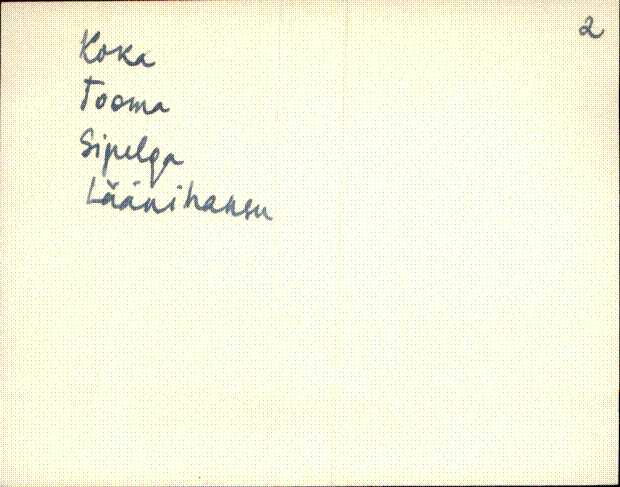 2
Koka
Tooma
Sipelga
Läänihansu